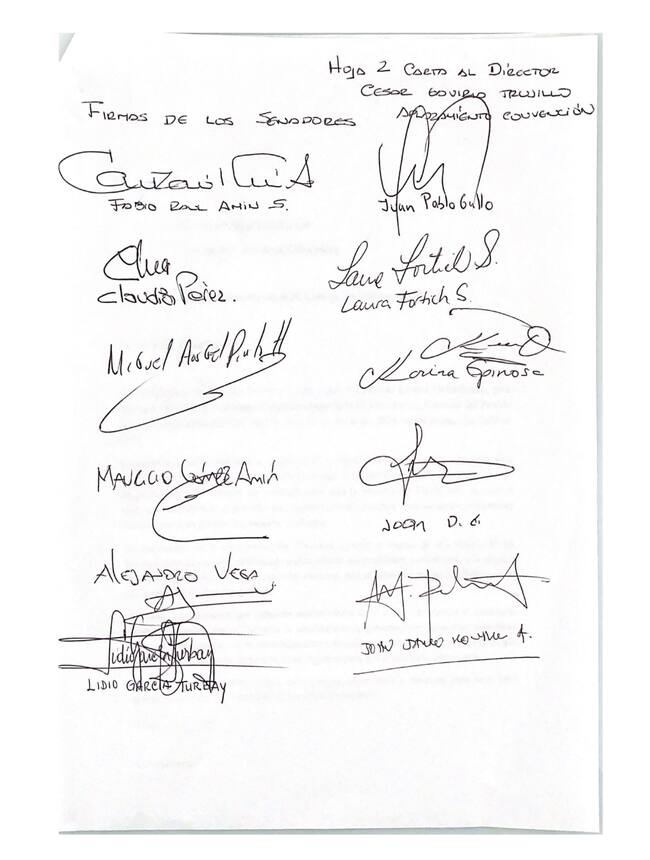 Hoja 2 Carta al Director
Cesar Gaviria Trujillo
Aplazamiento Convención
Firmas de los Senadores
Fabio Raul Amin S.
Juan Pablo Gallo
Claudia Pérez.
Laura Fortich S.
Laura Fortich S.
Miguel Angel Pinto H
Karina Espinosa
Mauricio Gómez Amín
John D. G.
Alejandro Vega
Lidio García Turbay
Lidio García Turbay
John Jairo